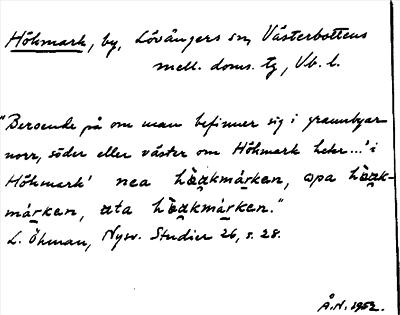 Höhmark, by, Lövångers sn, Västerbottens
mell. doms. tg, Vb. l.
"Beroende på om man befinner sig i grannbyar
norr, söder eller väster om Höhmark heter...'i
Höhmark' nea hö̀ạkmárken, opa hö̀ạk-
márken, ata hö̀ạkmárken."
L. Öhman, Nysv. Studier 26, s. 28.
Å.N. 1952.